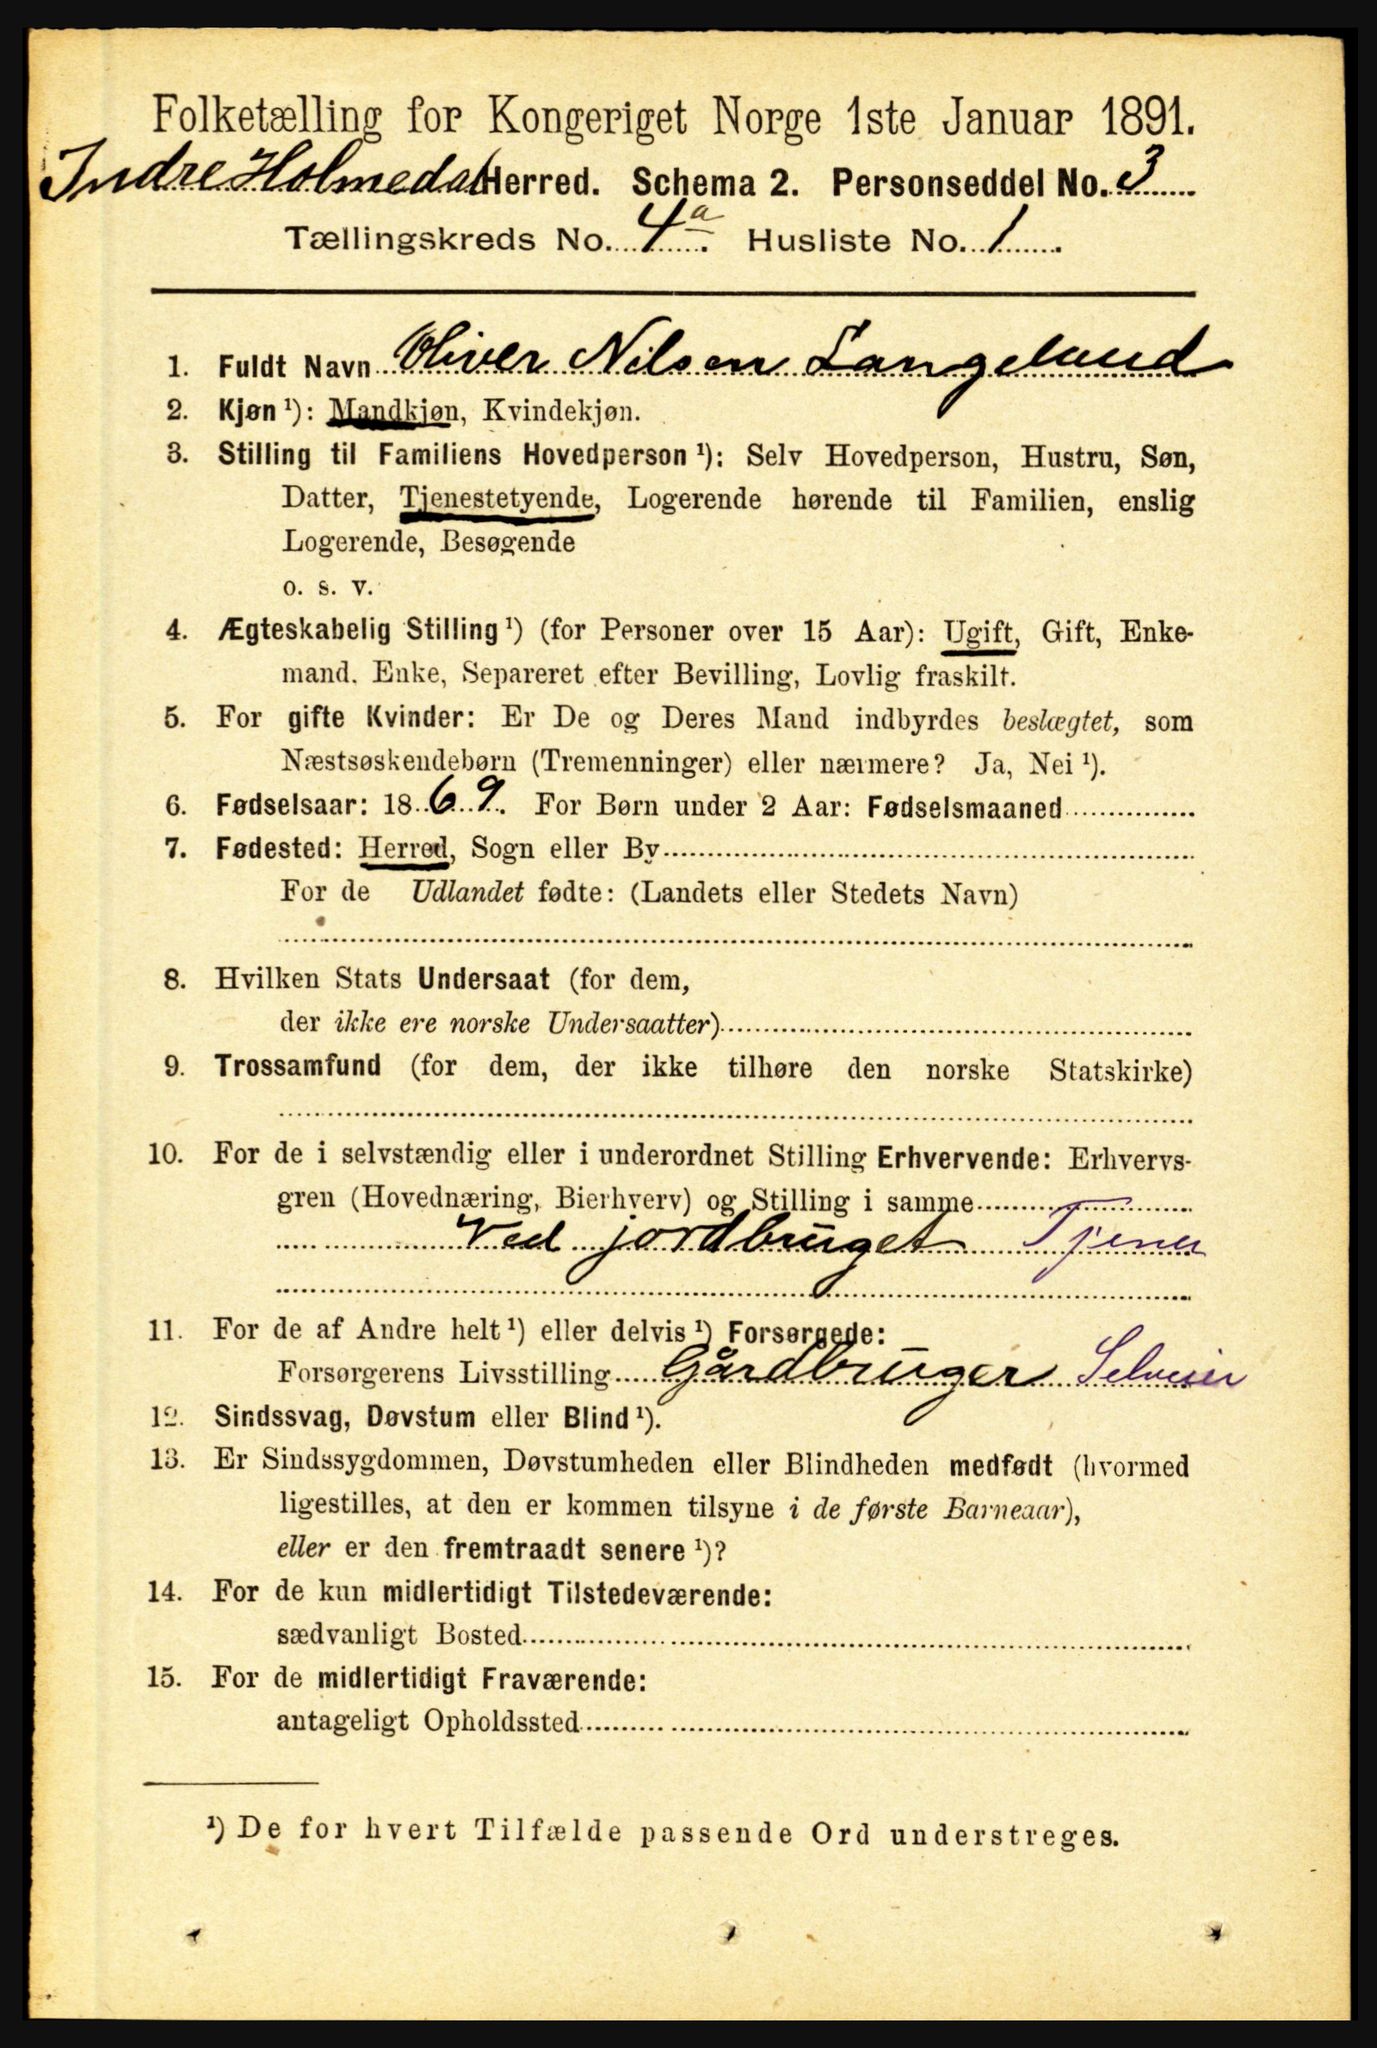 Folketælling for Kongeriget Norge 1ste Januar 1891.
Indre Holmedal Herred. Schema 2. Personseddel No. 3
Tællingskreds No. 4a. Husliste No. 1.
1. Fuldt Navn Oliver Nilsen Langeland
2. Kjøn ¹): Mandkjøn, Kvindekjøn.
3. Stilling til Familiens Hovedperson ¹): Selv Hovedperson, Hustru, Søn,
Datter, Tjenestetyende, Logerende hørende til Familien, enslig
Logerende, Besøgende
o. s. v.
4. Ægteskabelig Stilling ¹) (for Personer over 15 Aar): Ugift, Gift, Enke-
mand, Enke, Separeret efter Bevilling, Lovlig fraskilt.
5. For gifte Kvinder: Er De og Deres Mand indbyrdes beslægtet, som
Næstsøskendebørn (Tremenninger) eller nærmere? Ja, Nei ¹).
6. Fødselsaar: 1869. For Børn under 2 Aar: Fødselsmaaned
7. Fødested: Herred, Sogn eller By
For de Udlandet fødte: (Landets eller Stedets Navn)
8. Hvilken Stats Undersaat (for dem,
der ikke ere norske Undersaatter)
9. Trossamfund (for dem, der ikke tilhøre den norske Statskirke)
10. For de i selvstændig eller i underordnet Stilling Erhvervende: Erhvervs-
gren (Hovednæring, Bierhverv) og Stilling i samme
Ved jordbruget Tjener
11. For de af Andre helt ¹) eller delvis ¹) Forsørgede:
Forsørgerens Livsstilling Gårdbruger Selveier
12. Sindssvag, Døvstum eller Blind ¹).
13. Er Sindssygdommen, Døvstumheden eller Blindheden medfødt (hvormed
ligestilles, at den er kommen tilsyne i de første Barneaar),
eller er den fremtraadt senere ¹)?
14. For de kun midlertidigt Tilstedeværende:
sædvanligt Bosted
15. For de midlertidigt Fraværende:
antageligt Opholdssted
¹) De for hvert Tilfælde passende Ord understreges.